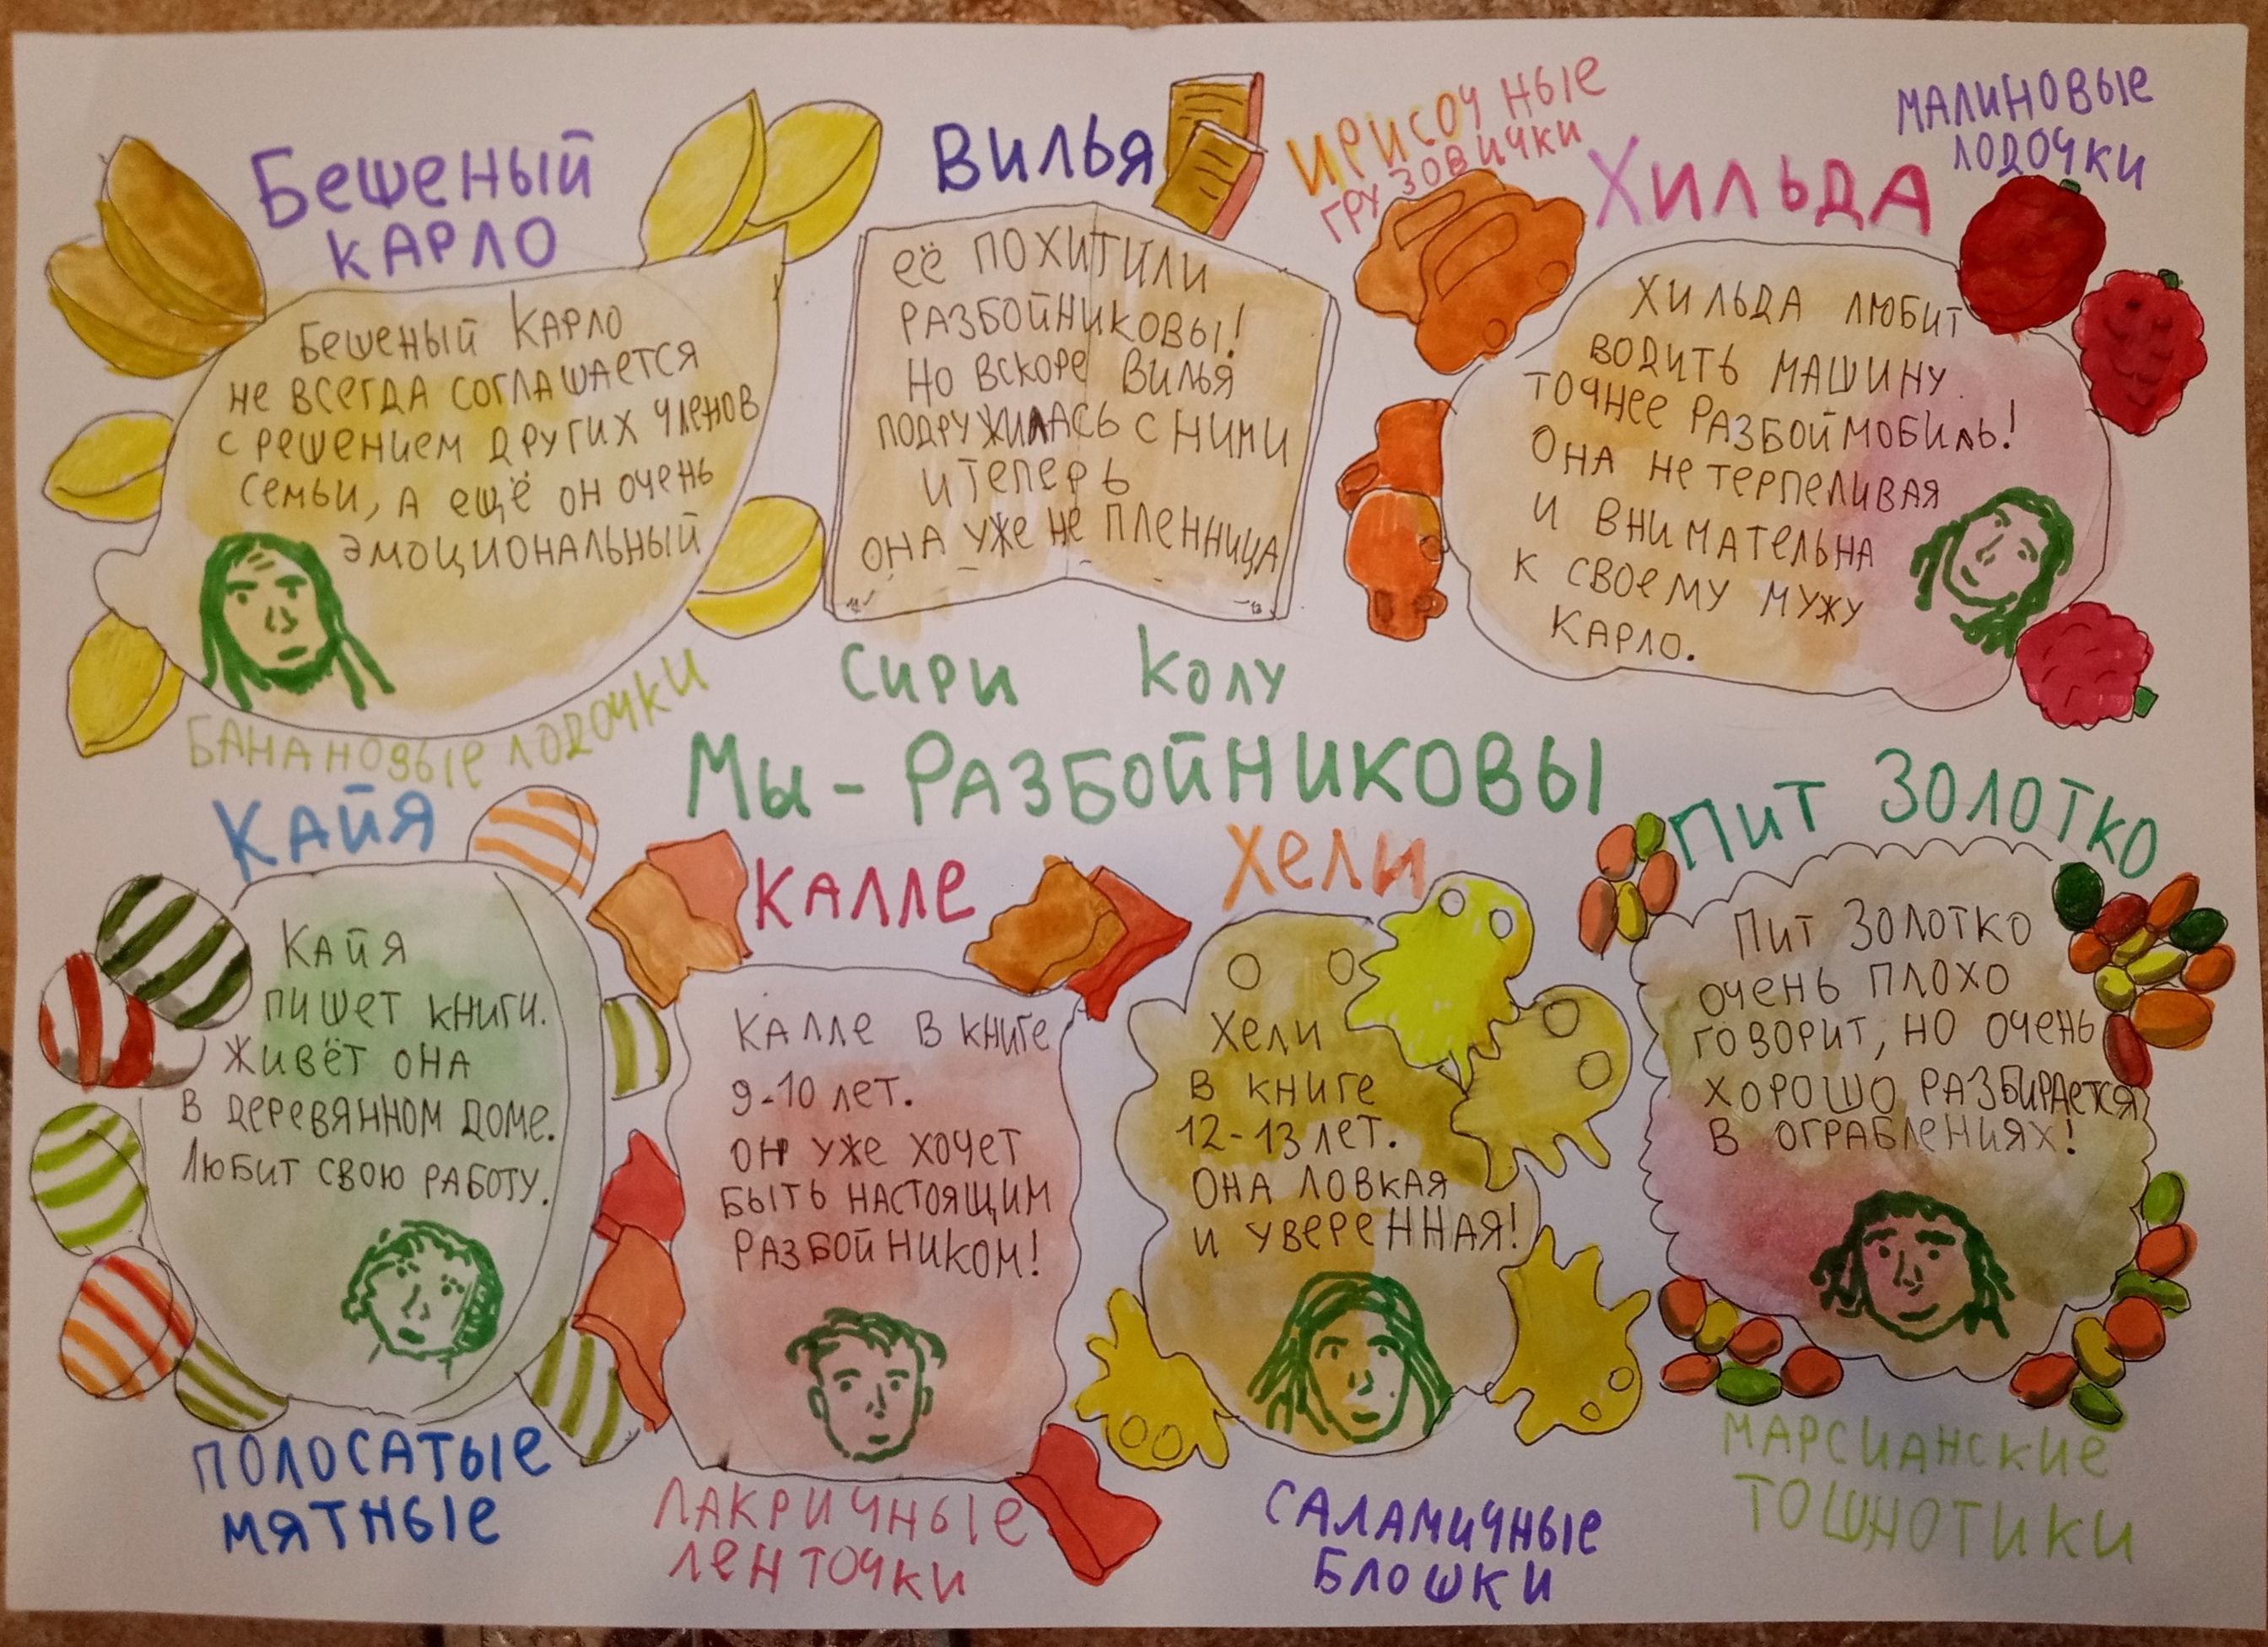 Бешеный
Карло
Бешеный Карло
не всегда соглашается
с решением других членов
семьи, а ещё он очень
эмоциональный
Банановые лодочки
Вилья
её похитили
Разбойниковы!
Но вскоре Вилья
подружилась с ними
и теперь
она уже не пленница
Ирисочные
грузовички
Хильда
Малиновые
лодочки
Хильда любит
водить машину
точнее разбоймобиль!
Она не терпеливая
и внимательна
к своему мужу
Карло.
Сири Колу
Мы - Разбойниковы
Кайя
Кайя
пишет книги.
Живёт она
в деревянном доме.
Любит свою работу.
Полосатые
мятные
Калле
Калле в книге
9-10 лет.
Он уже хочет
быть настоящим
разбойником!
Лакричные
ленточки
Хели
Хели
в книге
12-13 лет.
Она ловкая
и уверенная!
Саламичные
блошки
Пит Золотко
Пит Золотко
очень плохо
говорит, но очень
хорошо разбирается
в ограблениях!
Марсианские
тошнотики